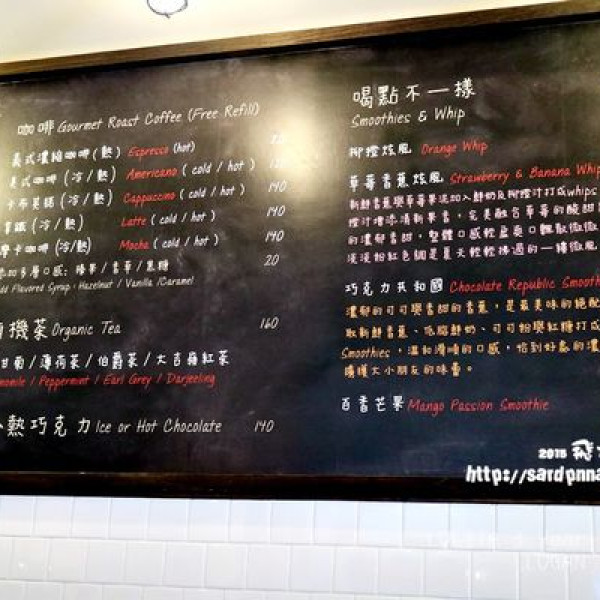 咖啡 Gourmet Roast Coffee (Free Refill)
美式濃縮咖啡(熱) Espresso (hot)
美式咖啡(冷/熱) Americano ( cold / hot )
卡布其諾(冷/熱) Cappuccino ( cold / hot ) 140
拿鐵(冷/熱) Latte ( cold / hot ) 140
摩卡咖啡(冷/熱) Mocha ( cold / hot ) 140
添加多層口感:榛果/香草/焦糖 20
Add Flavored Syrup : Hazelnut / Vanilla /Caramel
有機茶 Organic Tea 160
甘菊/薄荷茶/伯爵茶/大吉嶺紅茶
Chamomile / Peppermint / Earl Grey / Darjeeling
熱巧克力 Ice or Hot Chocolate 140
喝點不一樣
Smoothies & Whip
柳橙炫風 Orange Whip
草莓香蕉炫風 Strawberry & Banana Whip
新鮮香蕉與草莓果泥加入鮮奶及柳橙汁打成whips
橙汁增添清新果香,完美融合草莓的酸甜
的濃郁香甜,整體口感輕盈爽口
淡淡粉紅色調是夏天輕輕拂過的一縷微風
巧克力共和國 Chocolate Republic Smooth
濃郁的可可與香甜的香蕉,是最美味的絕配
取新鮮香蕉、低脂鮮奶、可可粉與紅糖打成
Smoothies,溫和滑順的口感,恰到好處的濃
擄獲大小朋友的味蕾。
百香芒果 Mango Passion Smoothie
2015 飛
http://sardpnna
LOGAN